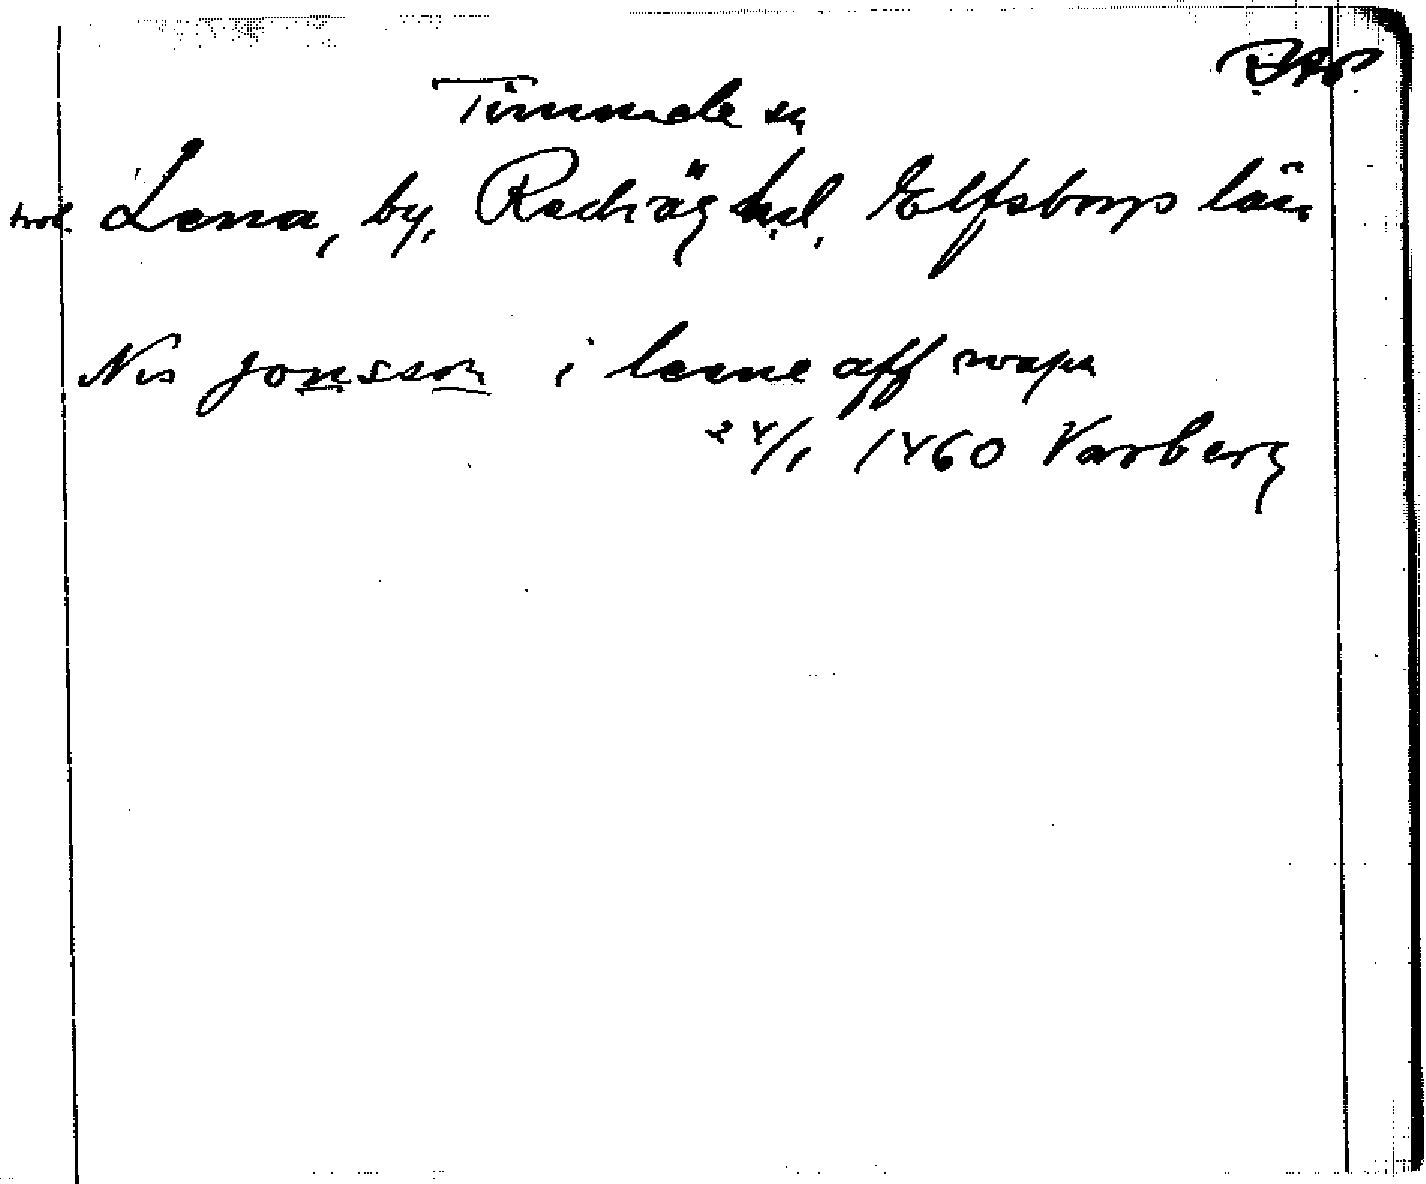 Timmele sn
trol. Lena, by, Redväg hd, Elfsborgs län
Nis jonsson i leene aff wapn
24/1 1460 Varberg